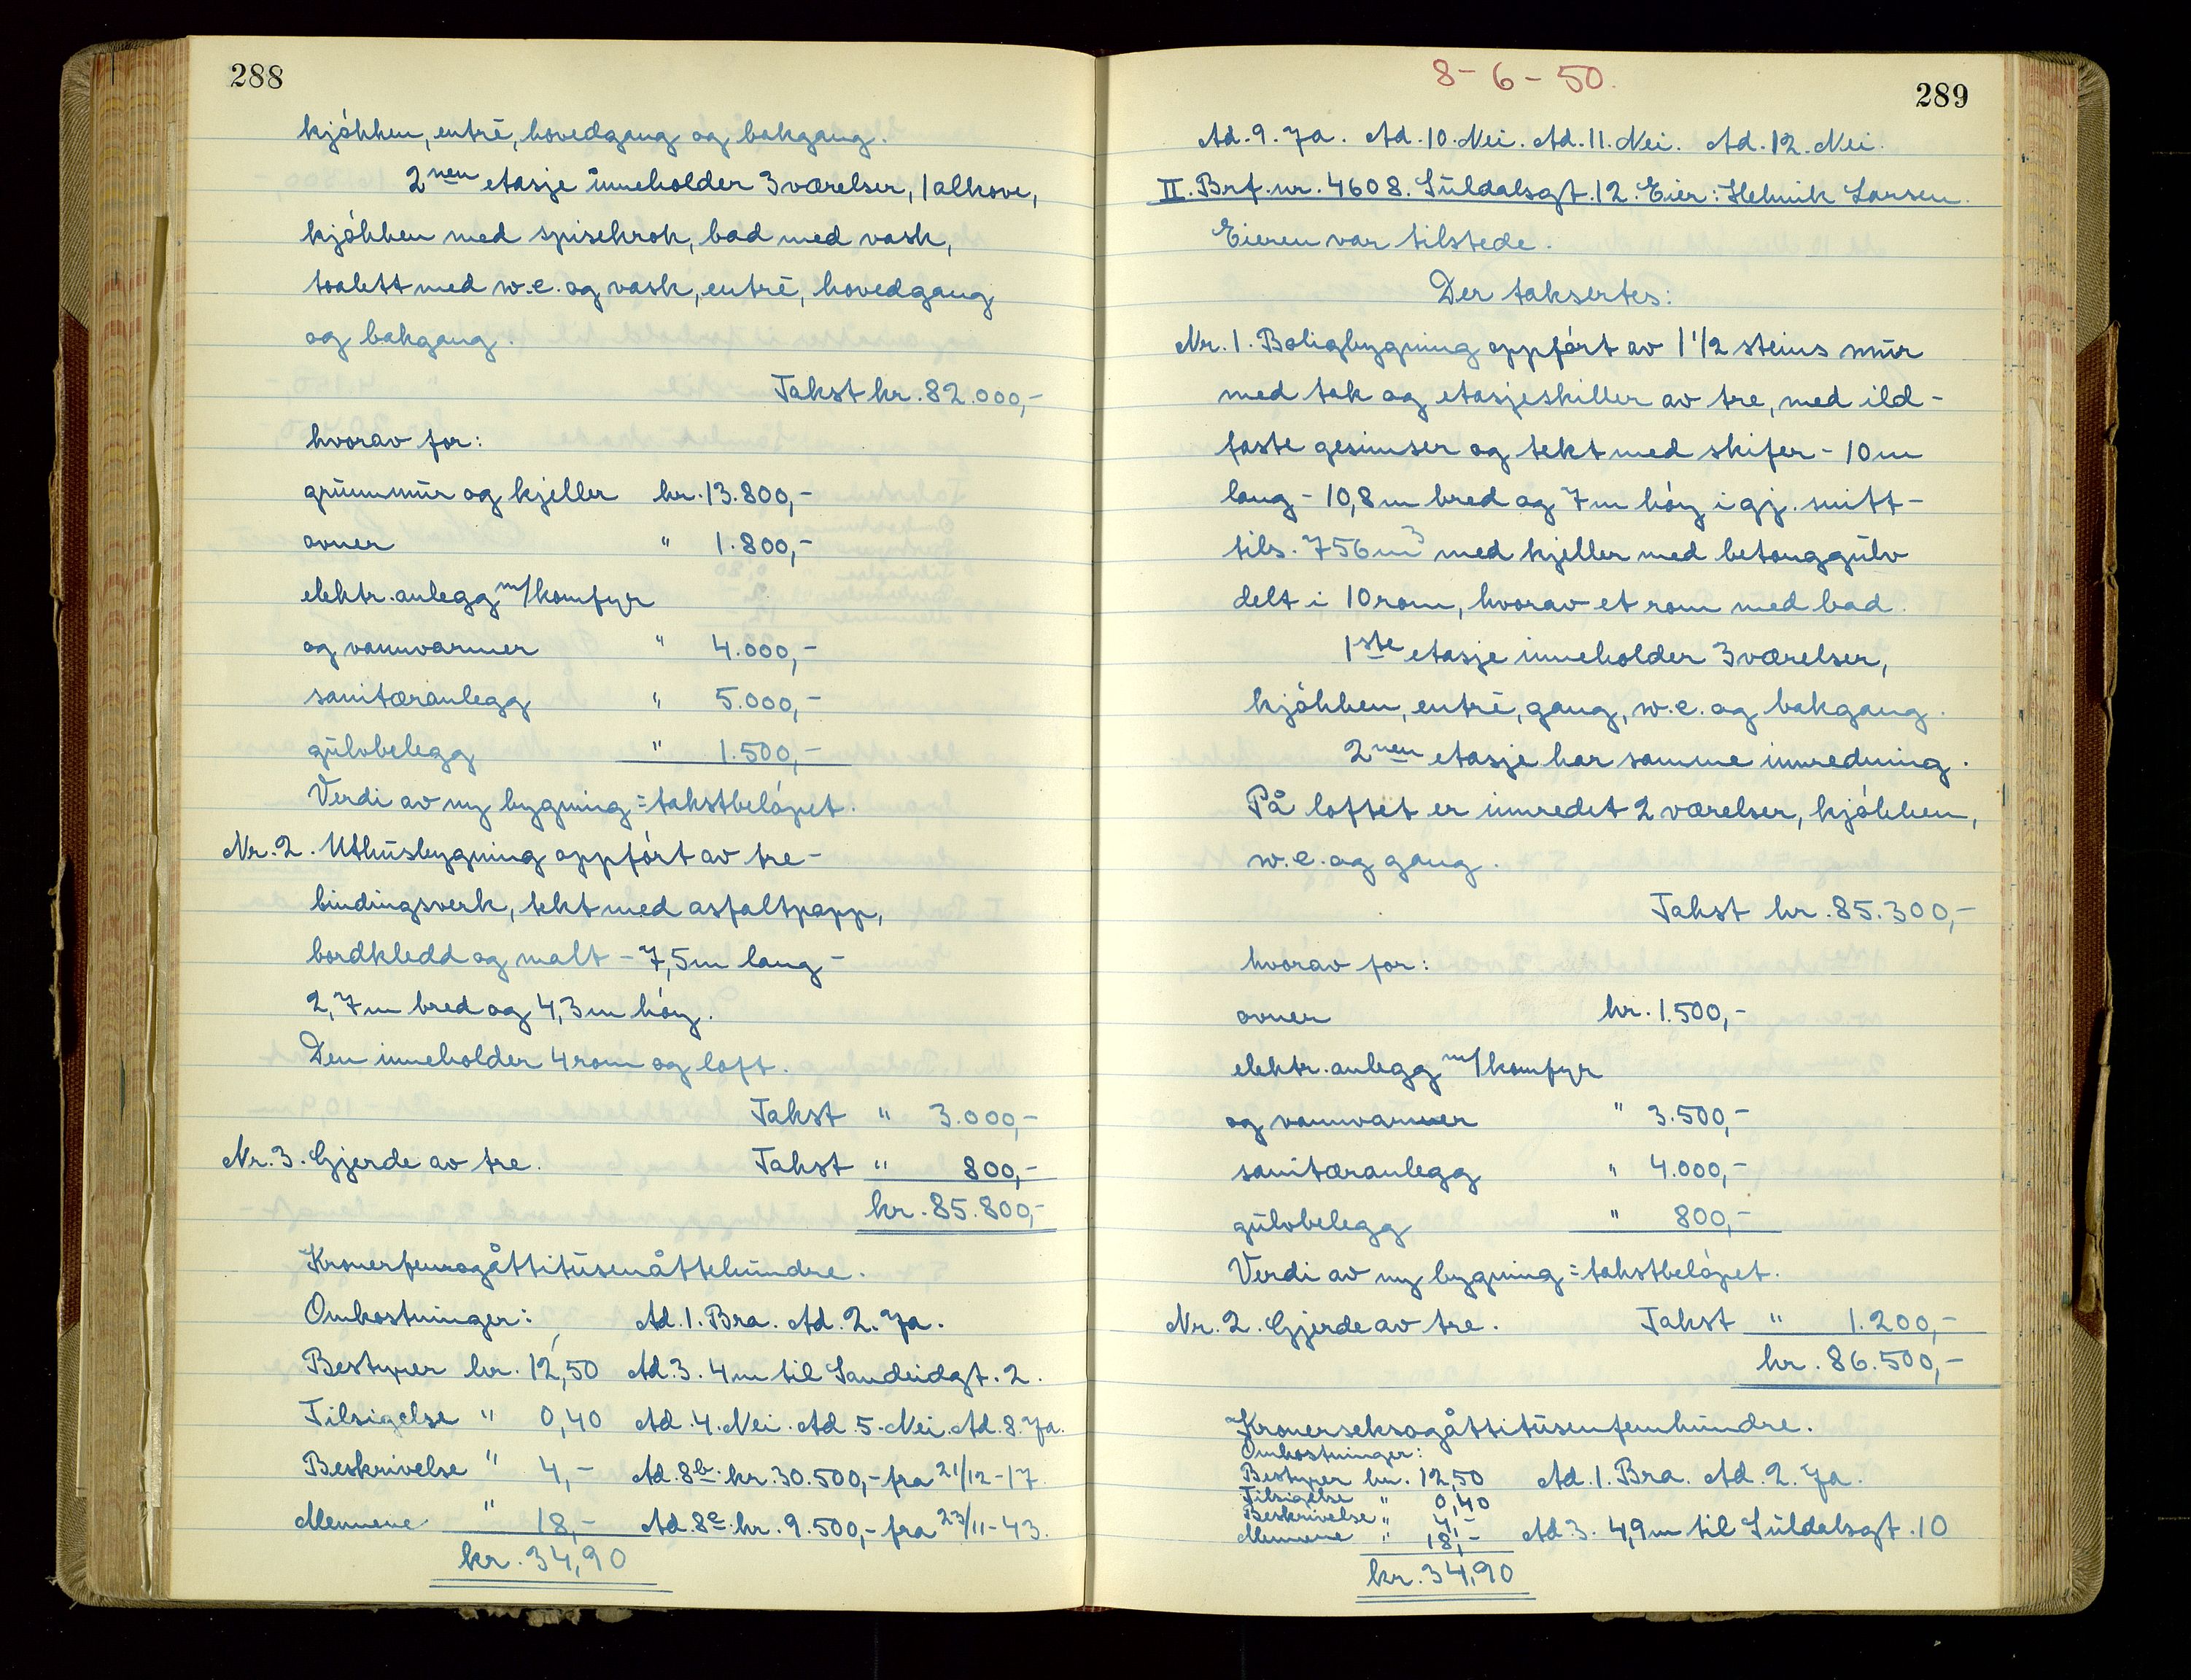 288
kjökken, entré, hovedgang og bakgang.
2nen etasje inneholder 3 værelser, 1 alkove,
kjökken med spisekrok, bad med vask,
toalett med w.c. og vask, entré, hovedgang
og bakgang.
Takst kr. 82.000,-
hvorav for:
grunnmur og kjeller kr. 13.800,-
ovner " 1.800,-
elektr. anlegg m/komfyr
og vannvarmer " 4.000,-
sanitæranlegg " 5.000,-
gulvbelegg " 1.500,-
Verdi av ny bygning = takstbelöpet.
Nr. 2. Uthusbygning oppfört av tre-
bindingsverk, tekt med asfaltpapp,
bordkledd og malt - 7,5 m lang -
2,7 m bred og 4,3 m höy.
Den inneholder 4 rom og loft.
Takst " 3.000,-
Nr. 3. Gjerde av tre. Takst " 800,-
kr. 85.800,-
Kronerfemogåttitusenåttehundre.
Omkostninger: Ad. 1. Bra. Ad. 2. Ja.
Bestyrer kr. 12,50 Ad. 3. 4 m til Sandeidgt. 2.
Tilsigelse " 0,40 Ad. 4. Nei. Ad. 5. Nei. Ad. 8. Ja.
Beskrivelse " 4,- Ad. 8b. kr. 30.500,- fra 21/12-17.
Mennene " 18,- Ad. 8c. kr. 9.500,- fra 23/11-43.
kr. 34,90
8-6-50.
289
Ad. 9. Ja. Ad. 10. Nei. Ad. 11. Nei. Ad. 12. Nei.
II. Brf. nr. 4608. Suldalsgt. 12. Eier: Helmik Larsen.
Eieren var tilstede.
Der taksertes:
Nr. 1. Boligbygning oppfört av 1 1/2 steins mur
med tak og etasjeskiller av tre, med ild-
faste gesimser og tekt med skifer - 10 m
lang - 10,8 m bred og 7 m höy i gj. snitt -
tils. 756 m3 med kjeller med betonggulv
delt i 10 rom, hvorav et rom med bad.
1ste etasje inneholder 3 værelser,
kjökken, entré, gang, w.c. og bakgang.
2nen etasje har samme innredning.
På loftet er innredet 2 værelser, kjökken,
w.c. og gang.
Takst kr. 85.300,-
hvorav for:
ovner kr. 1.500,-
elektr. anlegg m/komfyr
og vannvarmer " 3.500,-
sanitæranlegg " 4.000,-
gulvbelegg " 800,-
Verdi av ny bygning = takstbelöpet.
Nr. 2. Gjerde av tre. Takst " 1.200,-
kr. 86.500,-
Kronerseksogåttitusenfemhundre.
Omkostninger:
Bestyrer kr. 12,50 Ad. 1. Bra. Ad. 2. Ja.
Tilsigelse " 0,40
Beskrivelse " 4,-
Mennene " 18,- Ad. 3. 4,9 m til Suldalsgt. 10
kr. 34,90